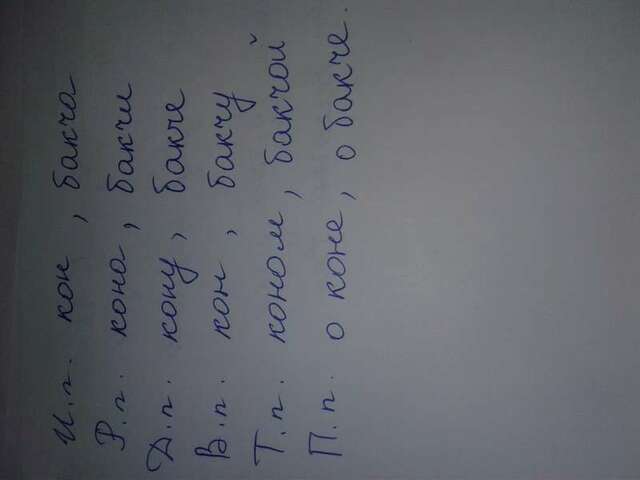 И.п. кон , бакча
Р.п. кона , бакчи
Д.п. кону , бакче
В.п. кон , бакчу
Т.п. коном , бакчой
П.п. о коне , о бакче.